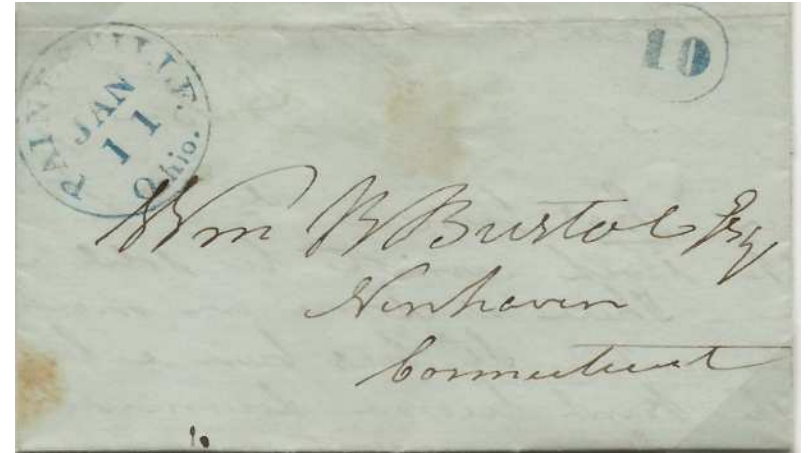 PAINESVILLE. Ohio.
JAN
11
10
Wm B Bristol Esq
Newhaven
Connecticut